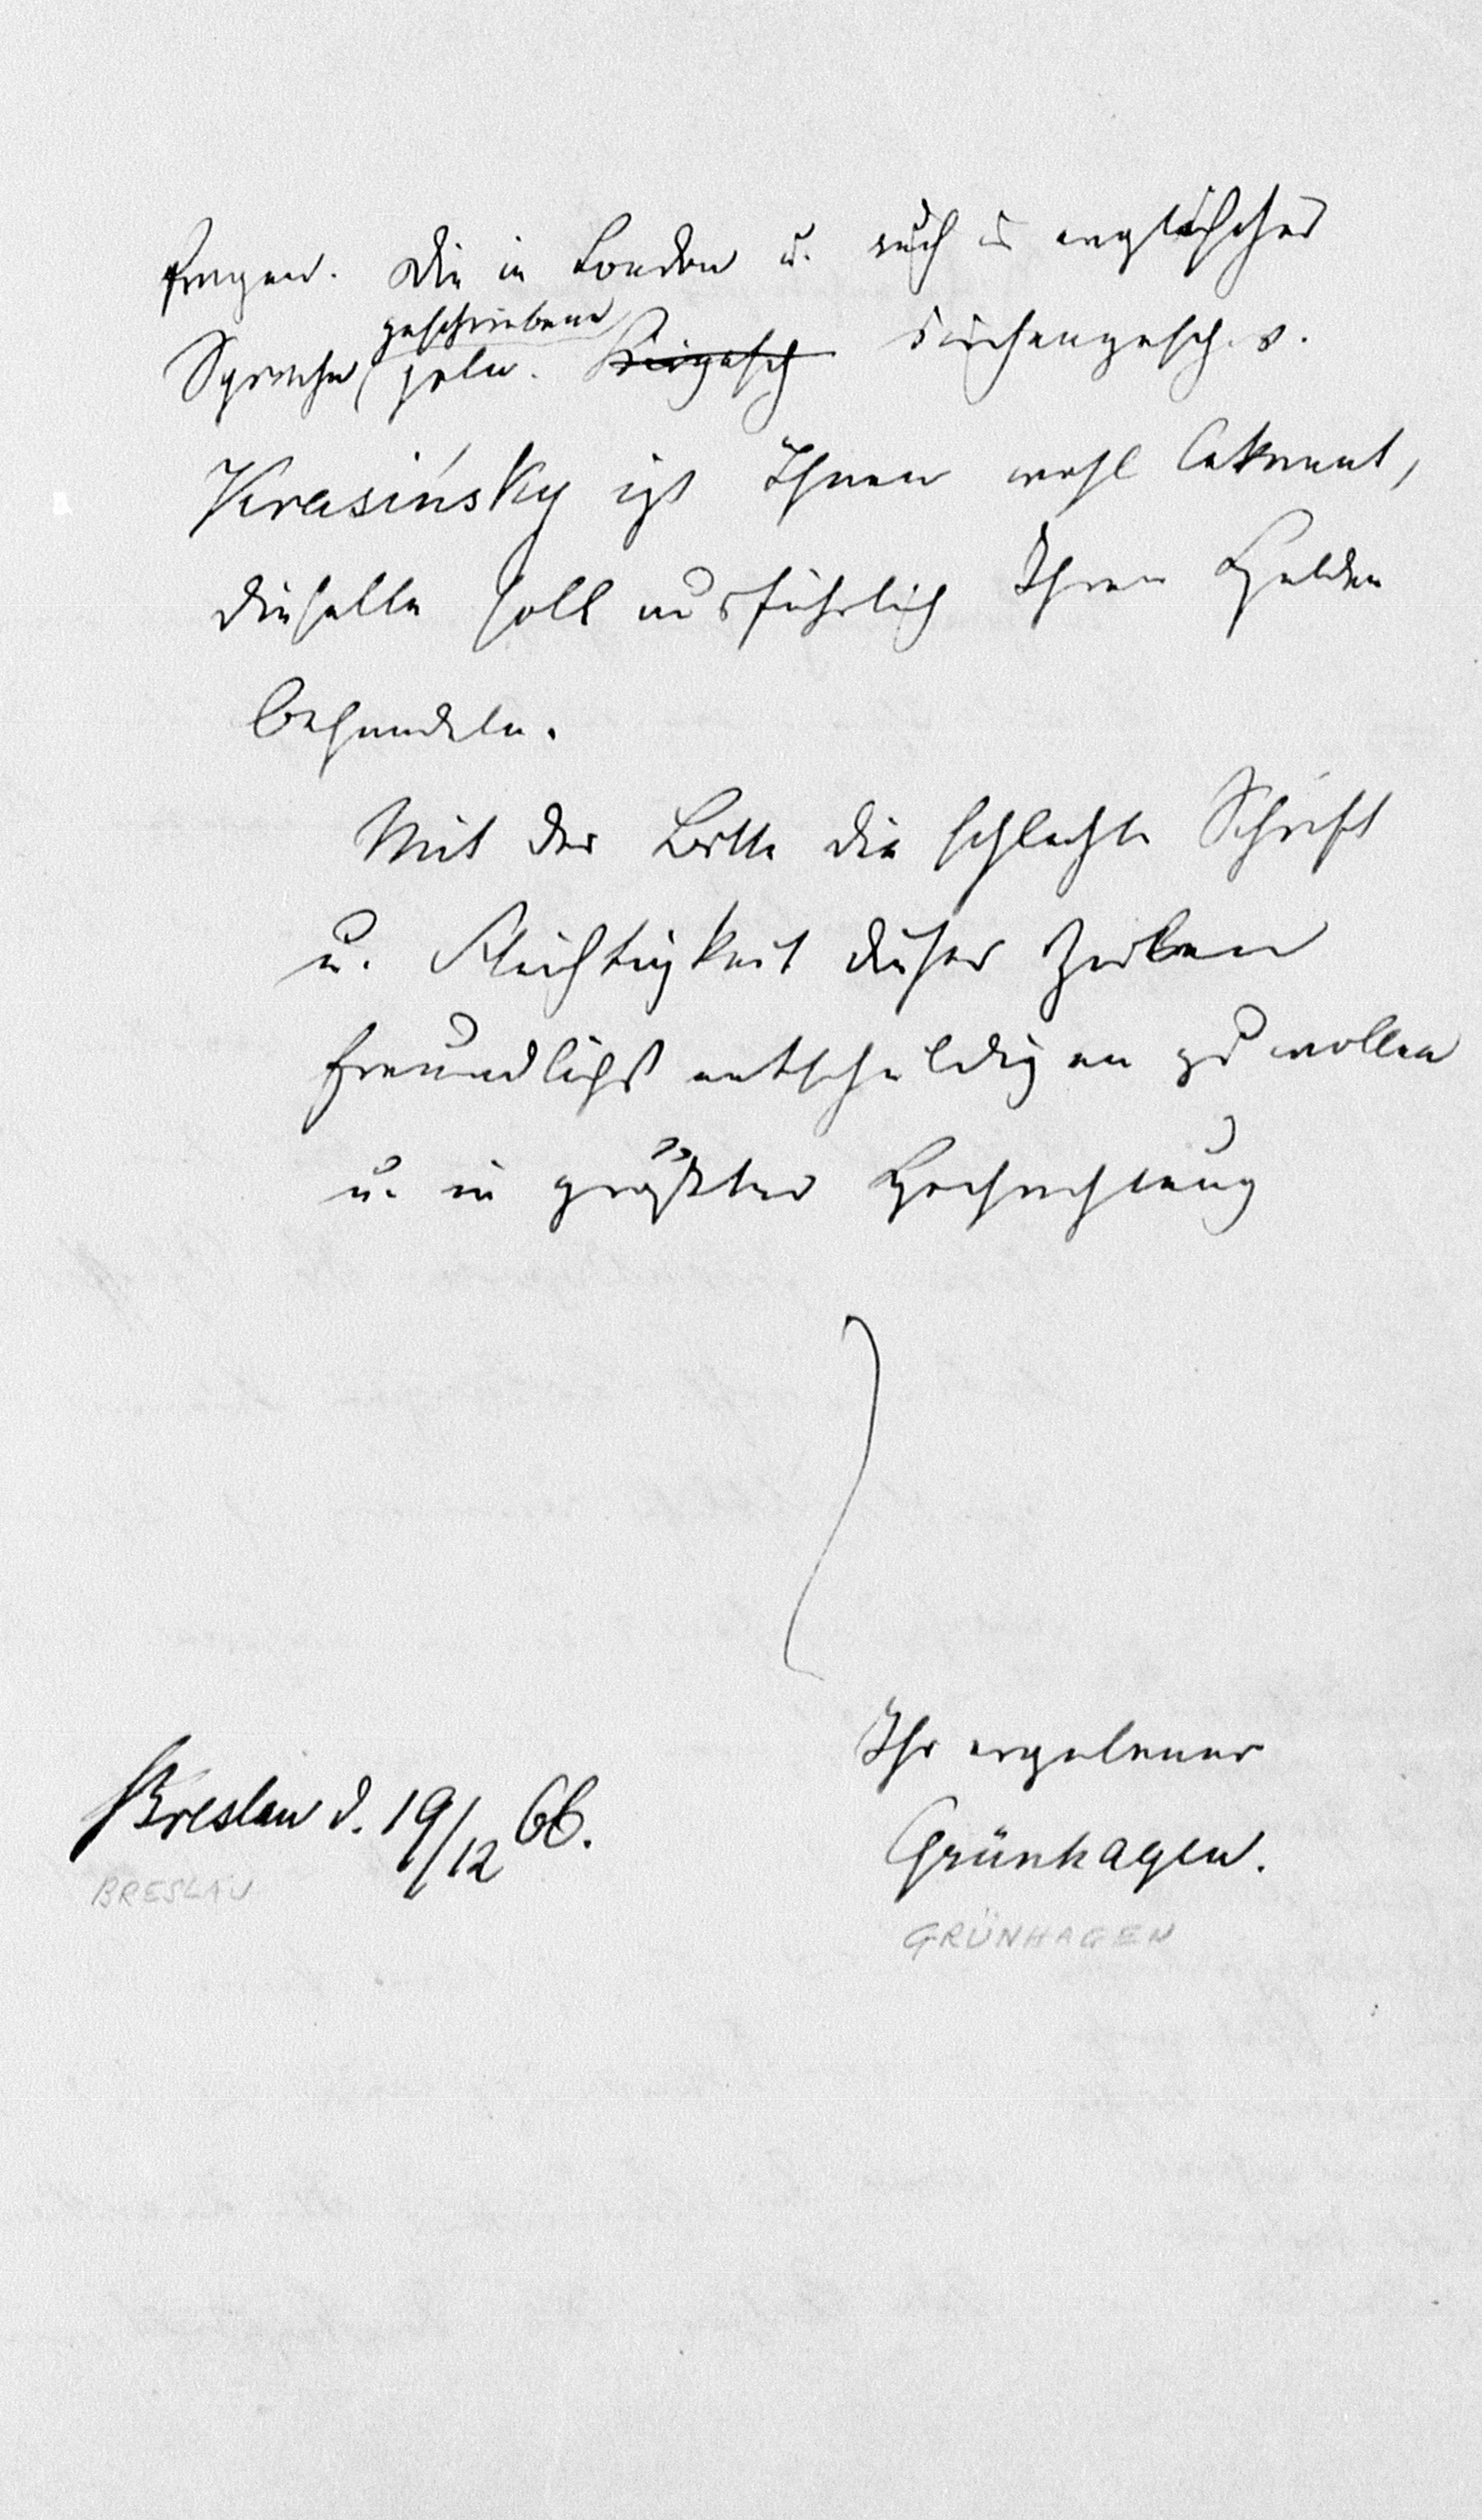 fragen. Die in London u. auch in englischer
geschriebene
Sprache poln. Kirgesch Kirchengesch. v.
Krasińsky ist Ihnen wohl bekannt,
dieselbe soll ausführlich Ihren Helden
behandeln.
Mit der Bitte die schlechte Schrift
u. Flüchtigkeit dieser Zeilen
freundlichst entschuldigen zu wollen
u. in größter Hochachtung
Ihr ergebener
Breslau d. 19/12 66.
Grünhagen.
BRESLAU
GRÜNHAGEN